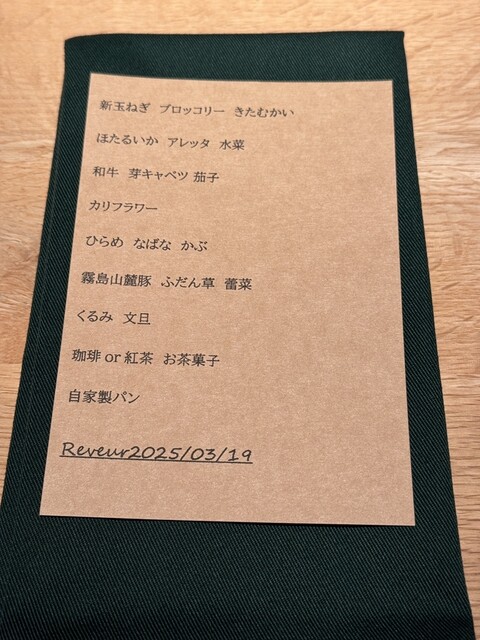 新玉ねぎ ブロッコリー きたむかい
ほたるいか アレッタ 水菜
和牛 芽キャベツ 茄子
カリフラワー
ひらめ なばな かぶ
霧島山麓豚 ふだん草 蕾菜
くるみ 文旦
珈琲 or 紅茶 お茶菓子
自家製パン
Reveur2025/03/19